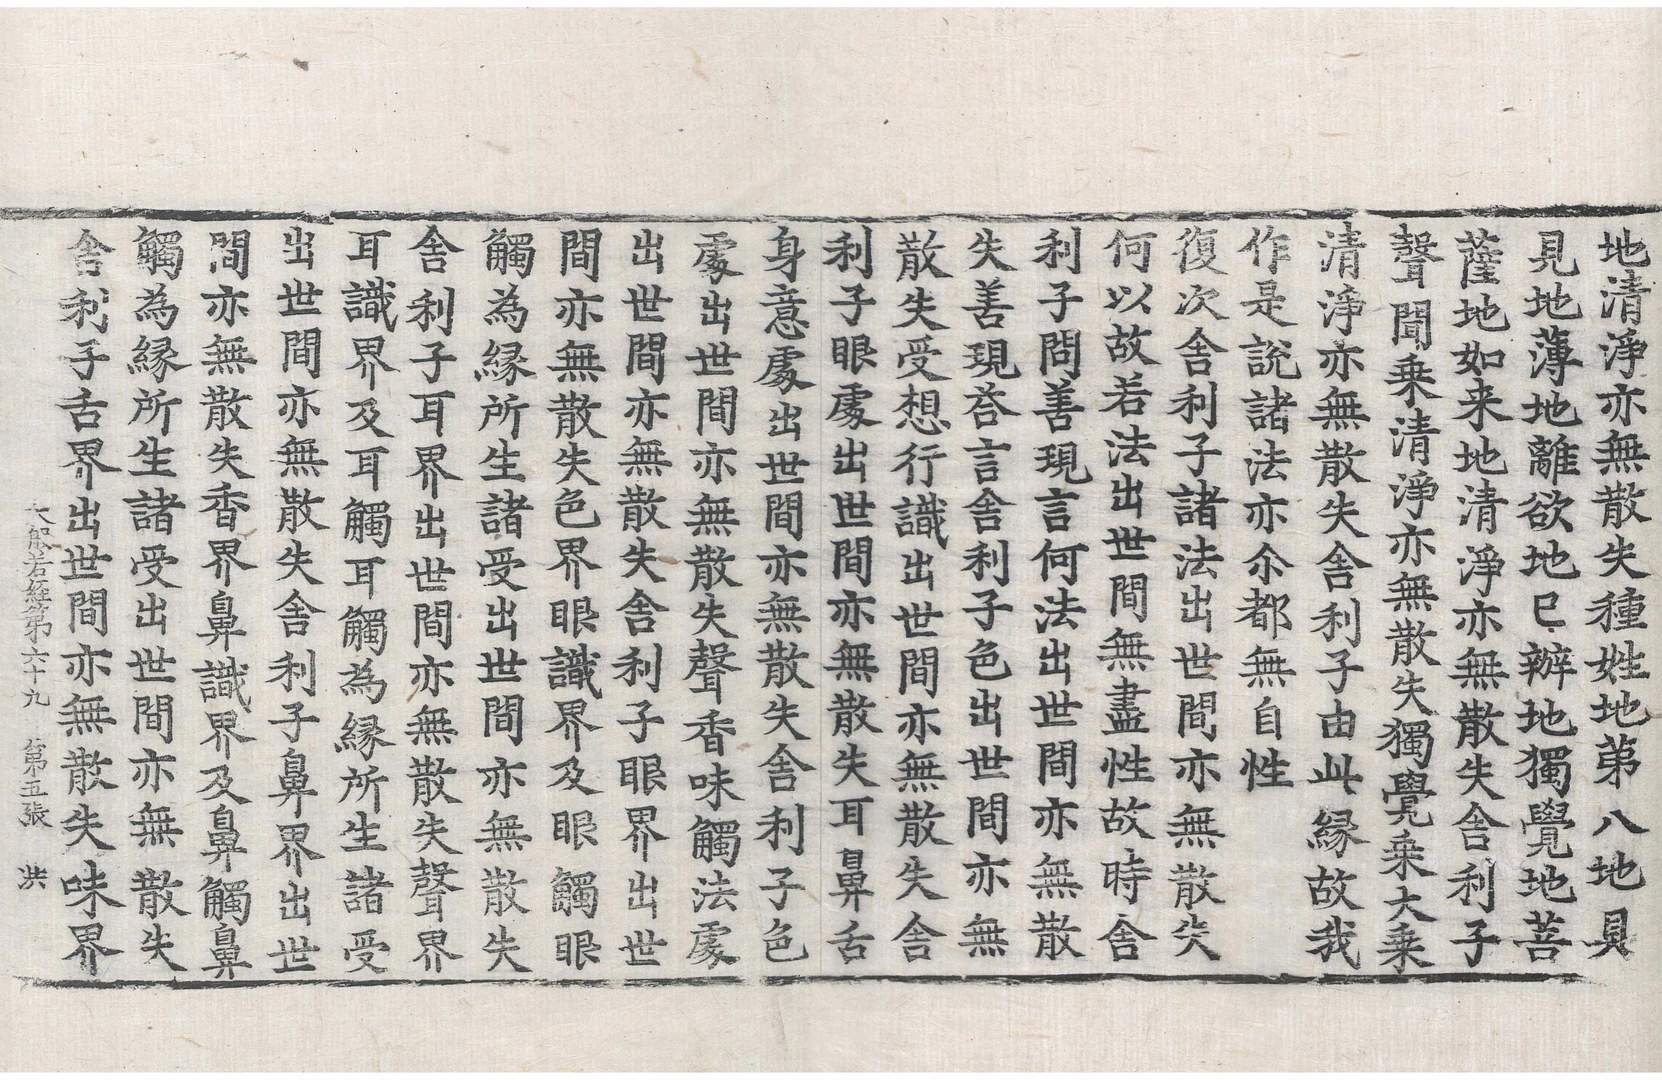 地清淨亦無散失種姓地第八地具
見地薄地離欲地已辦地獨覺地菩
薩地如来地清淨亦無散失舍利子
聲聞乗清淨亦無散失獨覺乗大乗
清淨亦無散失舍利子由此縁故我
作是說諸法亦尒都無自性
復次舍利子諸法出世間亦無散失
何以故若法出世間無盡性故時舍
利子問善現言何法出世間亦無散
失善現荅言舍利子色出世間亦無
散失受想行識出世間亦無散失舍
利子眼處出世間亦無散失耳鼻舌
身意處出世間亦無散失舍利子色
處出世間亦無散失聲香味觸法處
出世間亦無散失舍利子眼界出世
間亦無散失色界眼識界及眼觸眼
觸為縁所生諸受出世間亦無散失
舍利子耳界出世間亦無散失聲界
耳識界及耳觸耳觸為縁所生諸受
出世間亦無散失舍利子鼻界出世
間亦無散失香界鼻識界及鼻觸鼻
觸為縁所生諸受出世間亦無散失
舍利子舌界出世間亦無散失味界
大般若経第六十九 第五張 洪